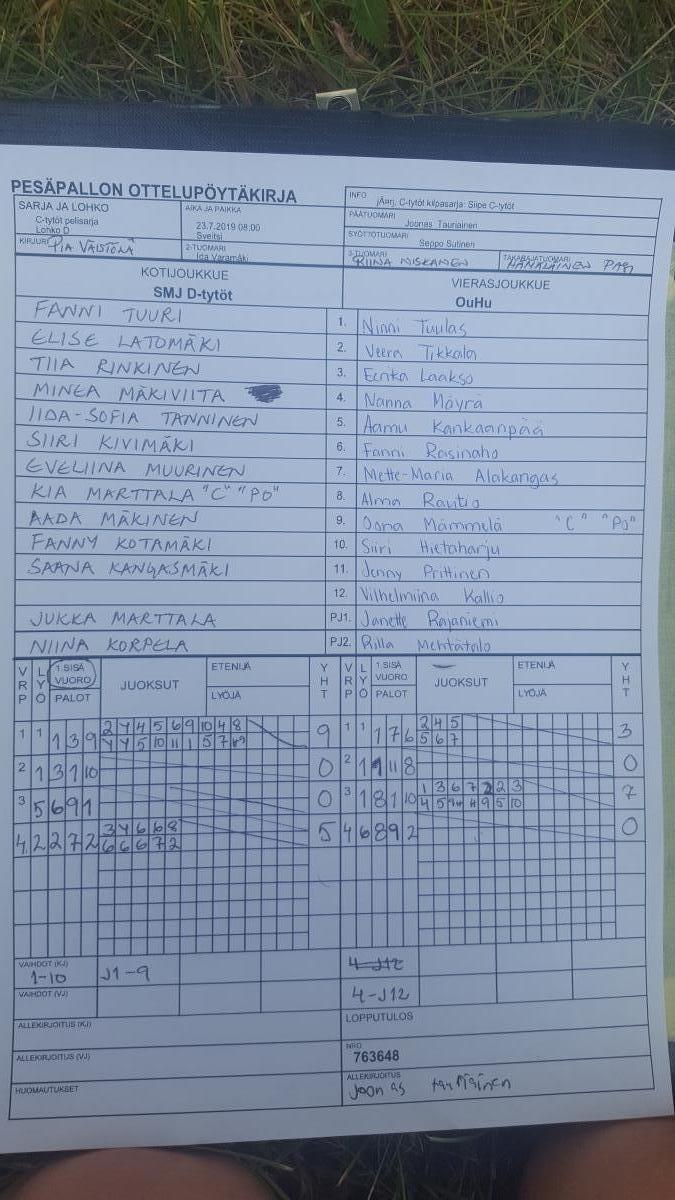 PESÄPALLON OTTELUPÖYTÄKIRJA
SARJA JA LOHKO
C-tytöt pelisarja
Lohko D
AIKA JA PAIKKA
23.7.2019 08:00
Sveitsi
INFO
jÄrj. C-tytöt kilpasarja: Siipe C-tytöt
PÄÄTUOMARI
Joonas Tauriainen
SYÖTTÖTUOMARI
Seppo Sutinen
KIRJURI PIA VÄISTÖLÄ
2-TUOMARI
Ida Varamäki
3-TUOMARI
RIINA NISKANEN
TAKARAJATUOMARI
KOTIJOUKKUE
SMJ D-tytöt
VIERASJOUKKUE
OuHu
FANNI TUURI 1. Ninni Tuulas
ELISE LATOMÄKI 2. Veera Tikkala
TIIA RINKINEN 3. Eerika Laakso
MINEA MÄKIVIITA 4. Nanna Möyrä
IIDA-SOFIA TANNINEN 5. Aamu Kankaanpää
SIIRI KIVIMÄKI 6. Fanni Rasinaho
EVELIINA MUURINEN 7. Mette-Maria Alakangas
KIA MARTTALA "C" "PO" 8. Alma Rautio
AADA MÄKINEN 9. Oona Mämmelä "C" "PO"
FANNY KOTAMÄKI 10. Siiri Hietaharju
SAANA KANGASMÄKI 11. Jenny Prittinen
12. Vilhelmiina Kallio
JUKKA MARTTALA PJ1. Janette Rajaniemi
NIINA KORPELA PJ2. Riila Mehtätalo
VRP LYÖ 1.SISÄ VUORO PALOT JUOKSUT ETENIJÄ LYÖJÄ YHT VRP LYÖ 1.SISÄ VUORO PALOT JUOKSUT ETENIJÄ LYÖJÄ YHT
1 1 1 3 9 2 4 4 5 6 9 10 4 8 9 1 1 1 7 6 2 4 5 3
5 6 7
2 1 3 1 10 0 2 1 1 11 8 0
3 5 6 9 1 0 3 1 8 1 10 1 3 6 7 2 2 3 7
4. 2 2 7 2 3 4 6 6 8 5 4 6 8 9 2 0
6 6 6 7 2
VAIHDOT (KJ)
1-10 J1-9 4-J12
VAIHDOT (VJ) 4-J12
ALLEKIRJOITUS (KJ) LOPPUTULOS
ALLEKIRJOITUS (VJ) NRO
763648
HUOMAUTUKSET ALLEKIRJOITUS
Joonas